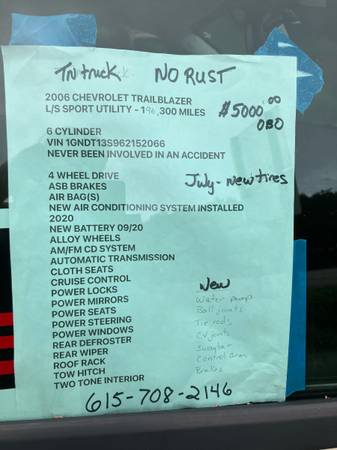 TN truck NO RUST
2006 CHEVROLET TRAILBLAZER
L/S SPORT UTILITY - 196,300 MILES
$5000.00
OBO
6 CYLINDER
VIN 1GNDT13S962152066
NEVER BEEN INVOLVED IN AN ACCIDENT
4 WHEEL DRIVE
July - new tires
ASB BRAKES
AIR BAG(S)
NEW AIR CONDITIONING SYSTEM INSTALLED
2020
NEW BATTERY 09/20
ALLOY WHEELS
AM/FM CD SYSTEM
AUTOMATIC TRANSMISSION
CLOTH SEATS
CRUISE CONTROL
POWER LOCKS
POWER MIRRORS
POWER SEATS
POWER STEERING
POWER WINDOWS
REAR DEFROSTER
REAR WIPER
ROOF RACK
TOW HITCH
TWO TONE INTERIOR
New
Water pump
Ball joints
Tie rods
CV joints
Swaybar
Control Arm
Brakes
615-708-2146